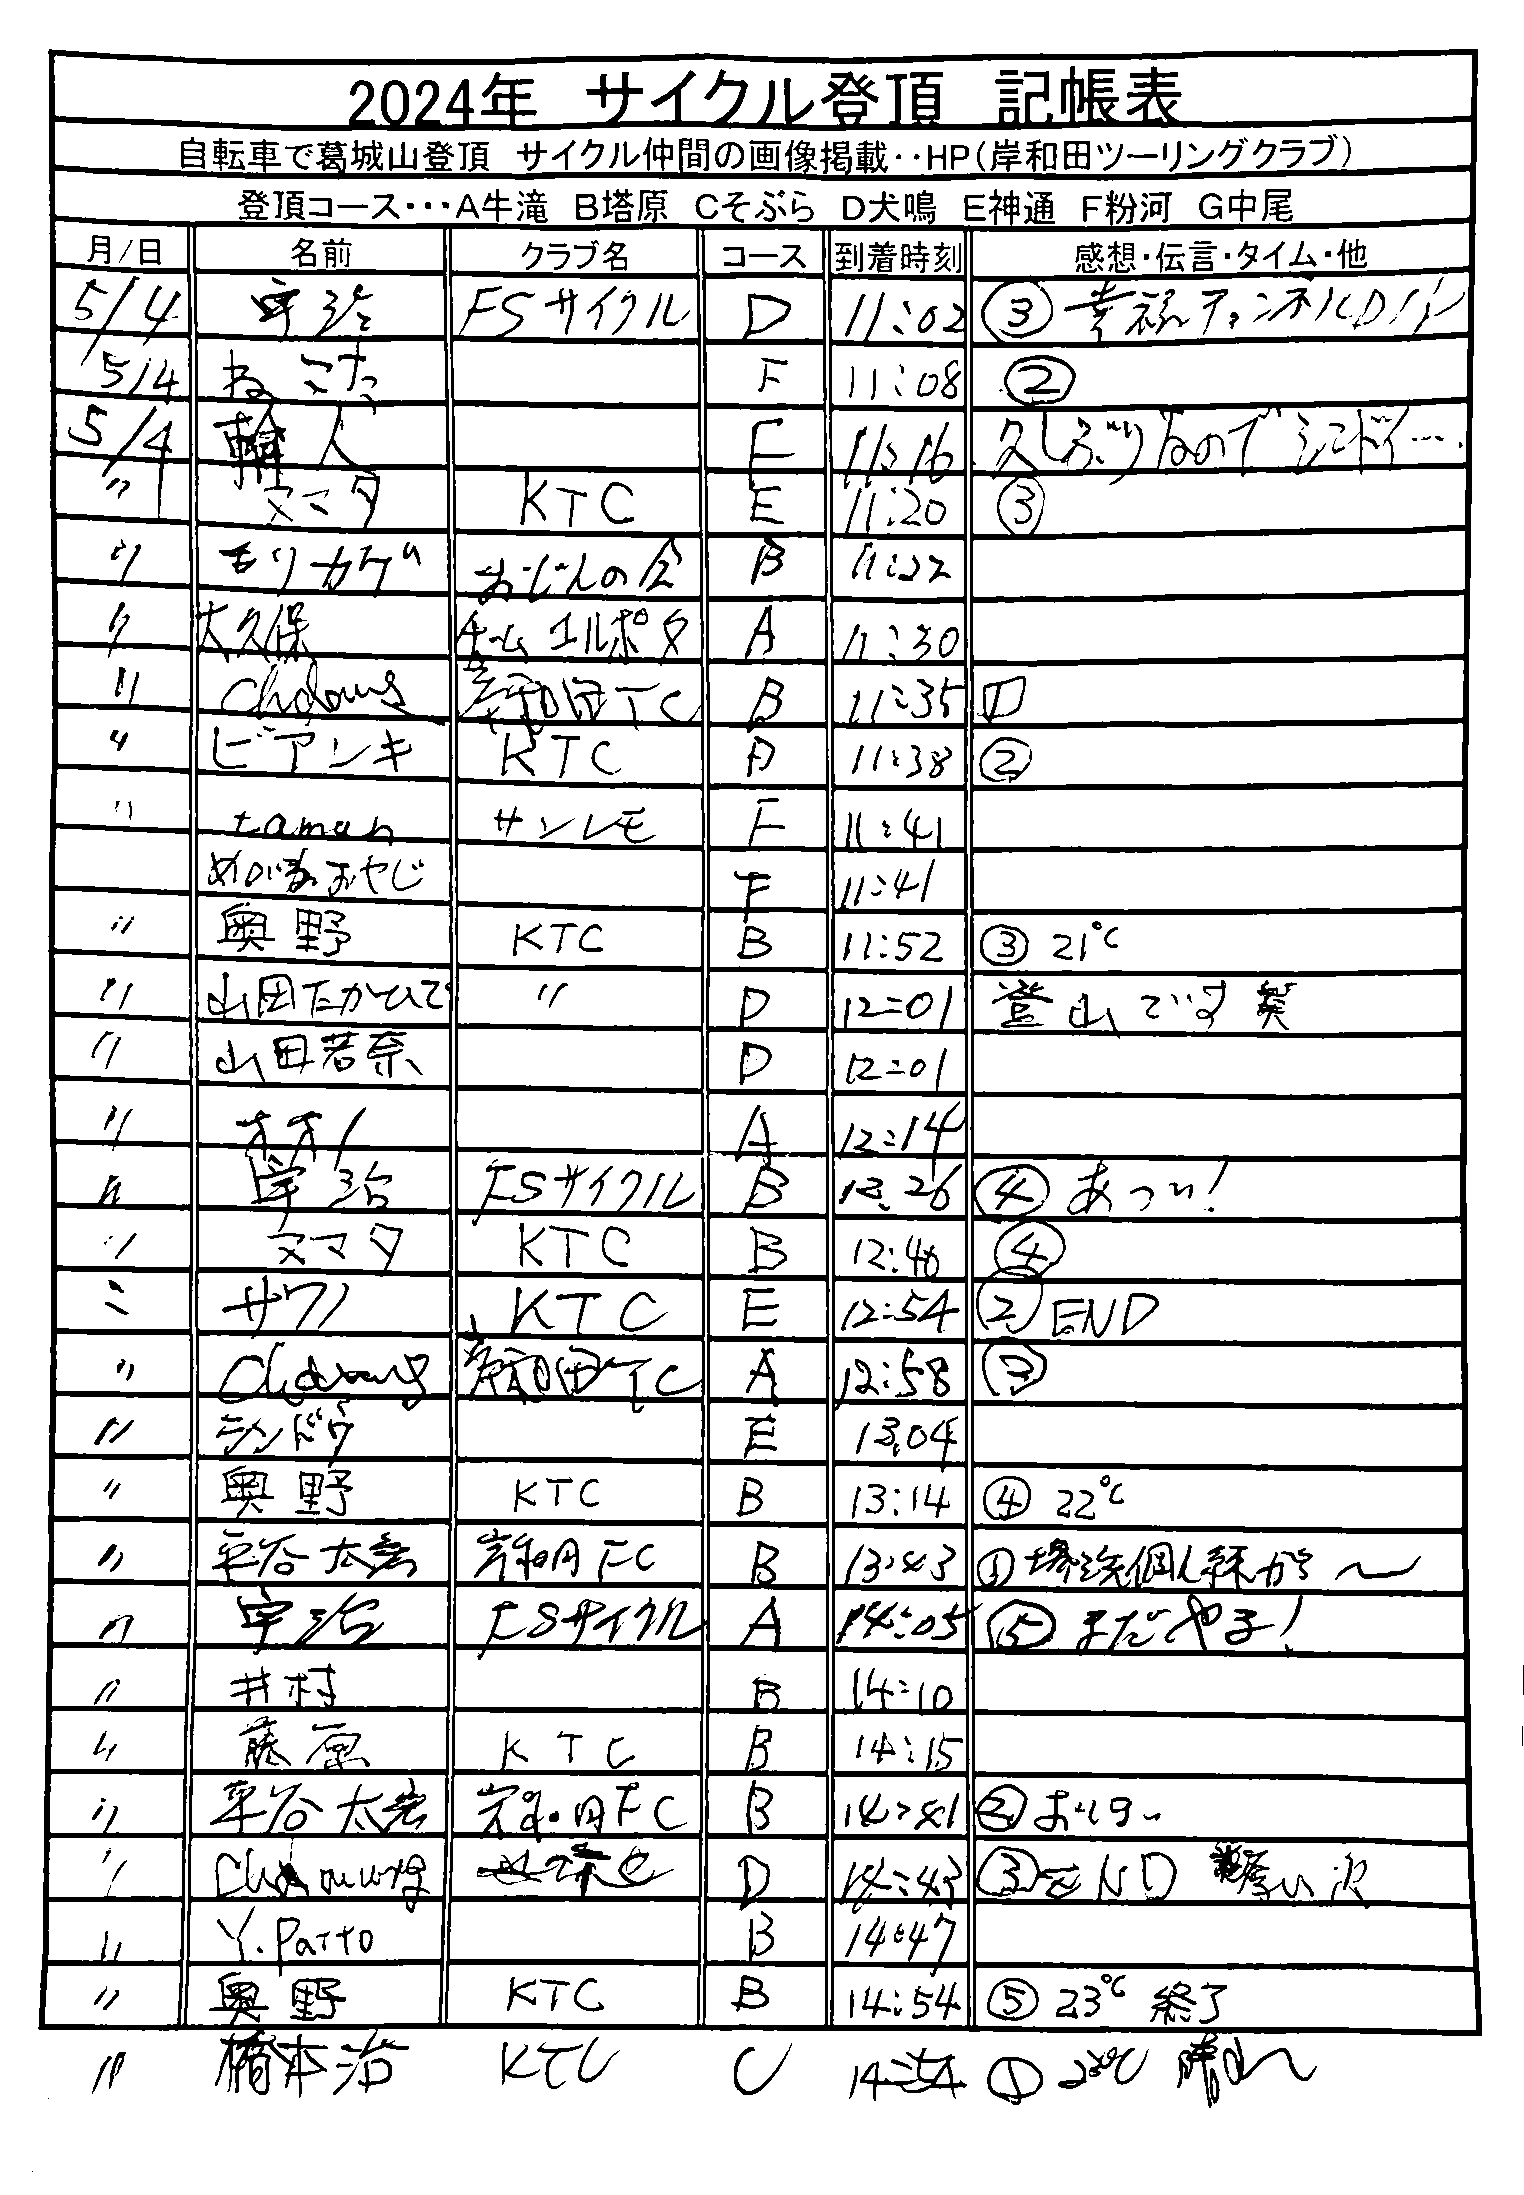 2024年 サイクル登頂 記帳表
自転車で葛城山登頂 サイクル仲間の画像掲載‥HP(岸和田ツーリングクラブ)
登頂コース・・・A牛滝 B塔原 Cそぶら D犬鳴 E神通 F粉河 G中尾
月/日 名前 クラブ名 コース 到着時刻 感想・伝言・タイム・他
5/4 宇治 FSサイクル D 11:02 ③
5/4 ねこた F 11:08 ②
5/4 輪人 F 11:16 久しぶりなのでシンドイ…
〃 ヌマタ KTC E 11:20 ③
〃 モリカゲ おじんの会 B 11:22
〃 大久保 チームエルポタ A 11:30
〃 岸和田TC B 11:35
〃 ビアンキ KTC 11:38 ②
〃 taman サンレモ F 11:41
めがねおやじ F 11:41
〃 奥野 KTC B 11:52 ③ 21℃
〃 山田たかひで 〃 D 12:01 登山です 笑
〃 山田若奈 D 12:01
〃 オオノ A 12:14
〃 宇治 FSサイクル B 12:26 ④ あつい!
〃 ヌマタ KTC B 12:40 ④
〃 サワノ KTC E 12:54 ② END
〃 岸和田TC A 12:58
〃 シンドウ E 13:04
〃 奥野 KTC B 13:14 ④ 22℃
〃 平谷太宏 岸和田FC B 13:43 ①
〃 宇治 FSサイクル A 14:05 ⑤ まだやる!
〃 井村 B 14:10
〃 藤原 KTC B 14:15
〃 平谷太宏 岸和田FC B 14:41 ②
〃 D 14:43 ③ END
〃 Y.Patto B 14:47
〃 奥野 KTC B 14:54 ⑤ 23℃ 終了
〃 橋本治 KTC C 14:54 ①